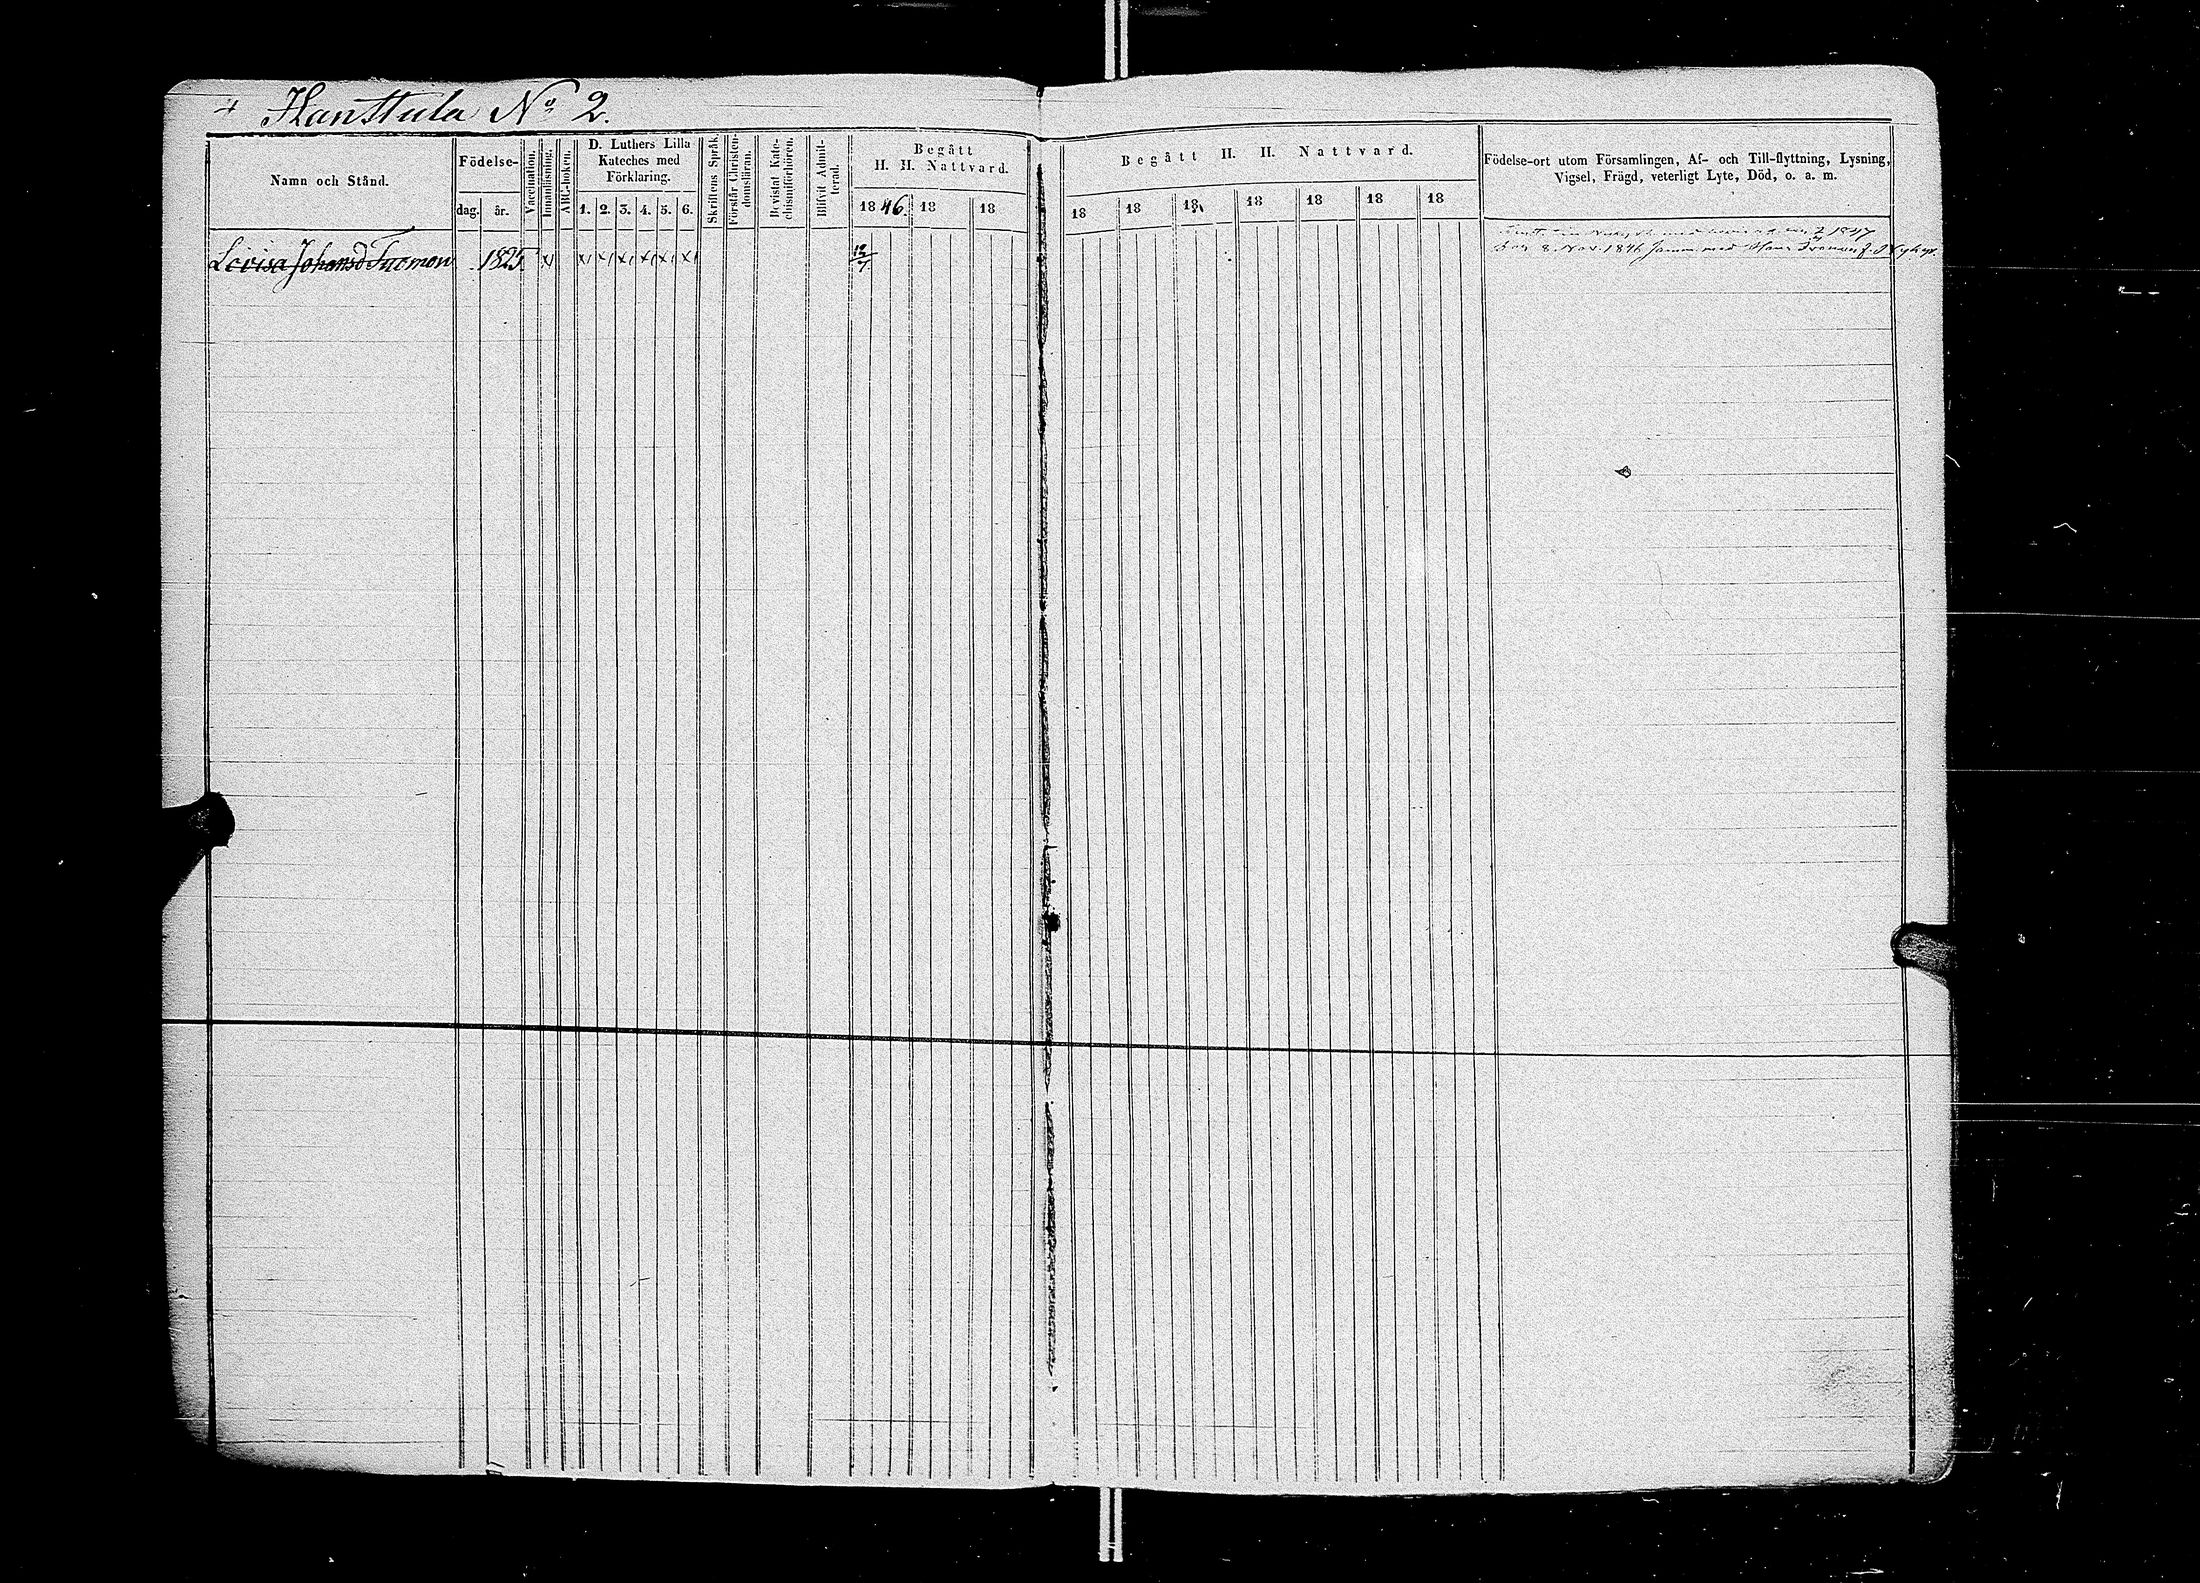 4 Hanttula No 2.
Namn och Stånd.
Födelse-
dag. år.
Vaccination.
Innanläsning.
ABC-boken.
D. Luthers Lilla
Kateches med
Förklaring.
1. 2. 3. 4. 5. 6.
Skriftens Språk.
Förstår Christen-
domsläran.
Bevistat Kate-
chismiförhören.
Blifvit Admit-
terad.
Begått
H. H. Nattvard.
1846. 18 18
Begått H. H. Nattvard.
18 18 18 18 18 18 18
Födelse-ort utom Församlingen, Af- och Till-flyttning, Lysning,
Vigsel, Frägd, veterligt Lyte, Död, o. a. m.
1847
Lovisa Johansd Tuomon 1825 x x x x x x x 12/7 8 Nov. 1846 med Hans